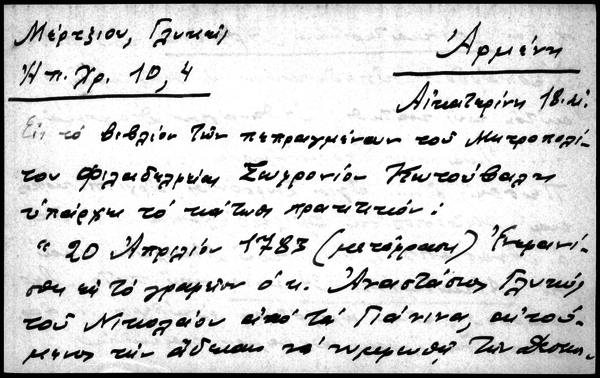 Μέρτζιου, Γλυκεῖς
Ἠπ. Χρ. 10, 4
Ἀρμένη
Αἰκατερίνη 18. αἰ.
Εἰς τό βιβλίον τῶν πεπραγμένων τοῦ Μητροπολί-
του Φιλαδελφείας Σωφρονίου Κουτούβαλη
ὑπάρχει τό κάτωθι πρακτικόν:
"20 Ἀπριλίου 1783 (μετάφρασις) Ἐνεφανί-
σθη εἰς τό γραφεῖον ὁ κ. Ἀναστάσιος Γλυκύς
τοῦ Νικολάου ἀπό τά Γιάνινα, αἰτού-
μενος τήν ἄδειαν νά νυμφευθῇ τήν